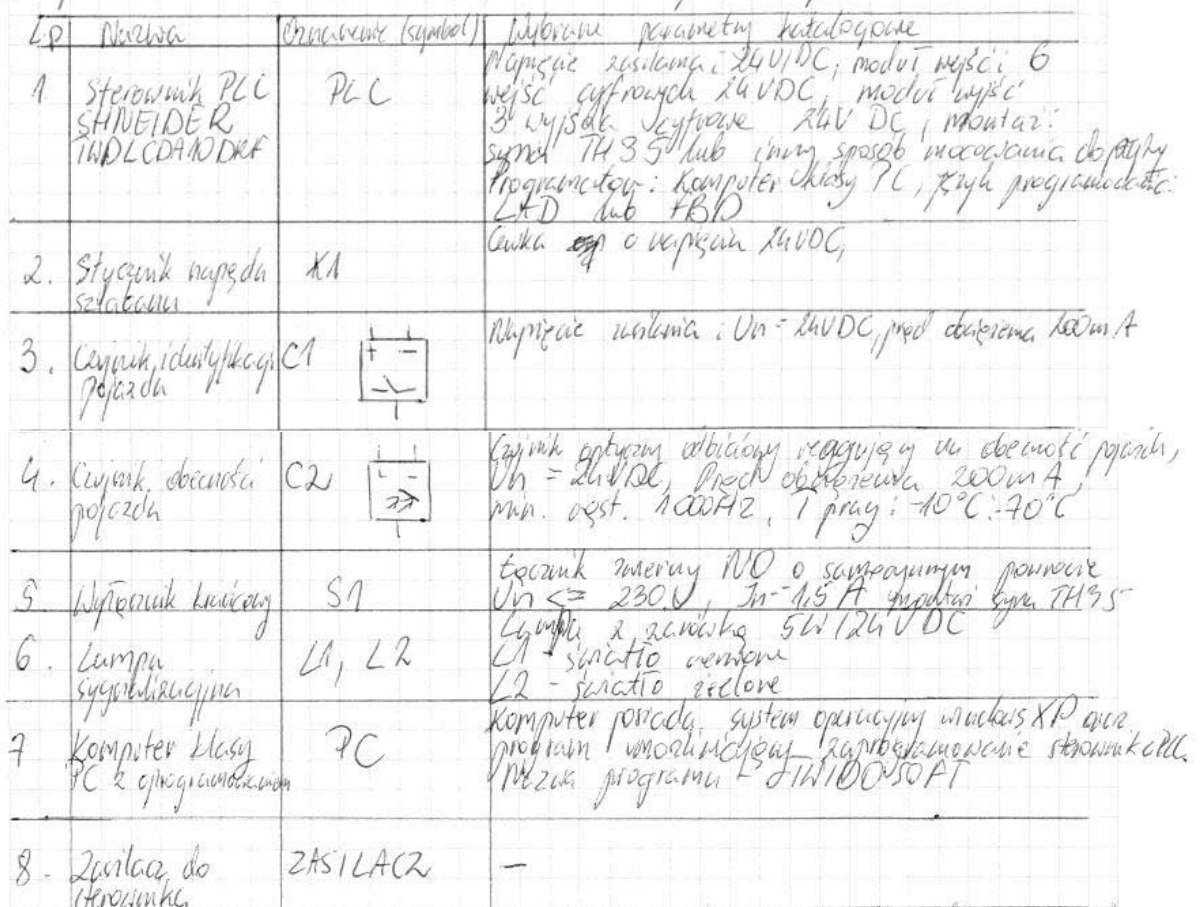 Lp Nazwa Oznaczenie (symbol) Wybrane parametry katalogowe
1. Sterownik PLC
SHNEIDER
TWDLCDA10DRF
PLC
Napięcie zasilania: 24V DC, moduł wejść: 6
wejść cyfrowych 24VDC, moduł wyjść
3 wyjścia cyfrowe 24V DC, montaż:
szyna TH35 lub inny sposób mocowania do płyty
Programator: Komputer klasy PC, język programowania:
LAD lub FBD
2. Stycznik napędu
szlabanu
K1
Cewka o napięciu 24VDC,
3. Czujnik identyfikacji
pojazdu
C1
+ -
Napięcie zasilania: Un = 24VDC, prąd obciążenia 200mA
4. Czujnik obecności
pojazdu
C2
Czujnik optyczny odbiciowy reagujący na obecność pojazdu,
Un = 24VDC, Prąd obciążenia 200mA,
min. częst. 1000Hz, T pracy: -10°C÷70°C
5. Wyłącznik krańcowy
S1
Łącznik zwierny NO o samoczynnym powrocie
Un <= 230V, In=1,5A montaż szyna TH35
6. Lampa
sygnalizacyjna
L1, L2
Lampki z żarówką 5W/24V DC
L1 - światło czerwone
L2 - światło zielone
7 Komputer klasy
PC z oprogramowaniem
PC
Komputer posiada system operacyjny windows XP oraz
program umożliwiający zaprogramowanie sterownika PLC.
Nazwa programu -
8. Zasilacz do
sterownika
ZASILACZ
-